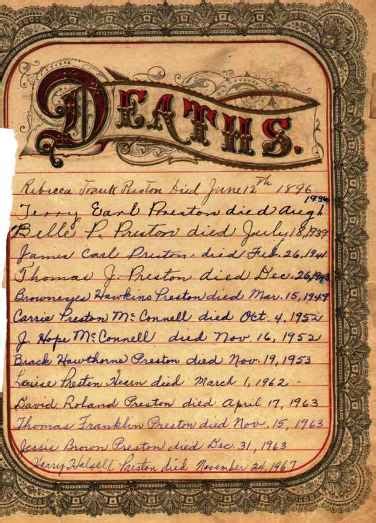 DEATHS.
Rebecca Trautt Preston Died June 12th 1896
1936
Terry Earl Preston died Aug
Belle P. Preston died July 18, 1939
James Carl Preston died Feb. 26, 1941
Thomas J. Preston died Dec. 26,
Browneyes Hawkins Preston died Mar. 15, 1949
Carrie Preston McConnell died Oct. 4, 1952
J. Hope McConnell died Nov 16, 1952
Brack Hawthorne Preston died Nov. 19, 1953
Louise Preston died March 1, 1962.
David Roland Preston died April 17, 1963
Thomas Franklin Preston died Nov. 15, 1963
Jessie Brown Preston died Dec. 31, 1963
Henry Halsell Preston died November 24, 1967